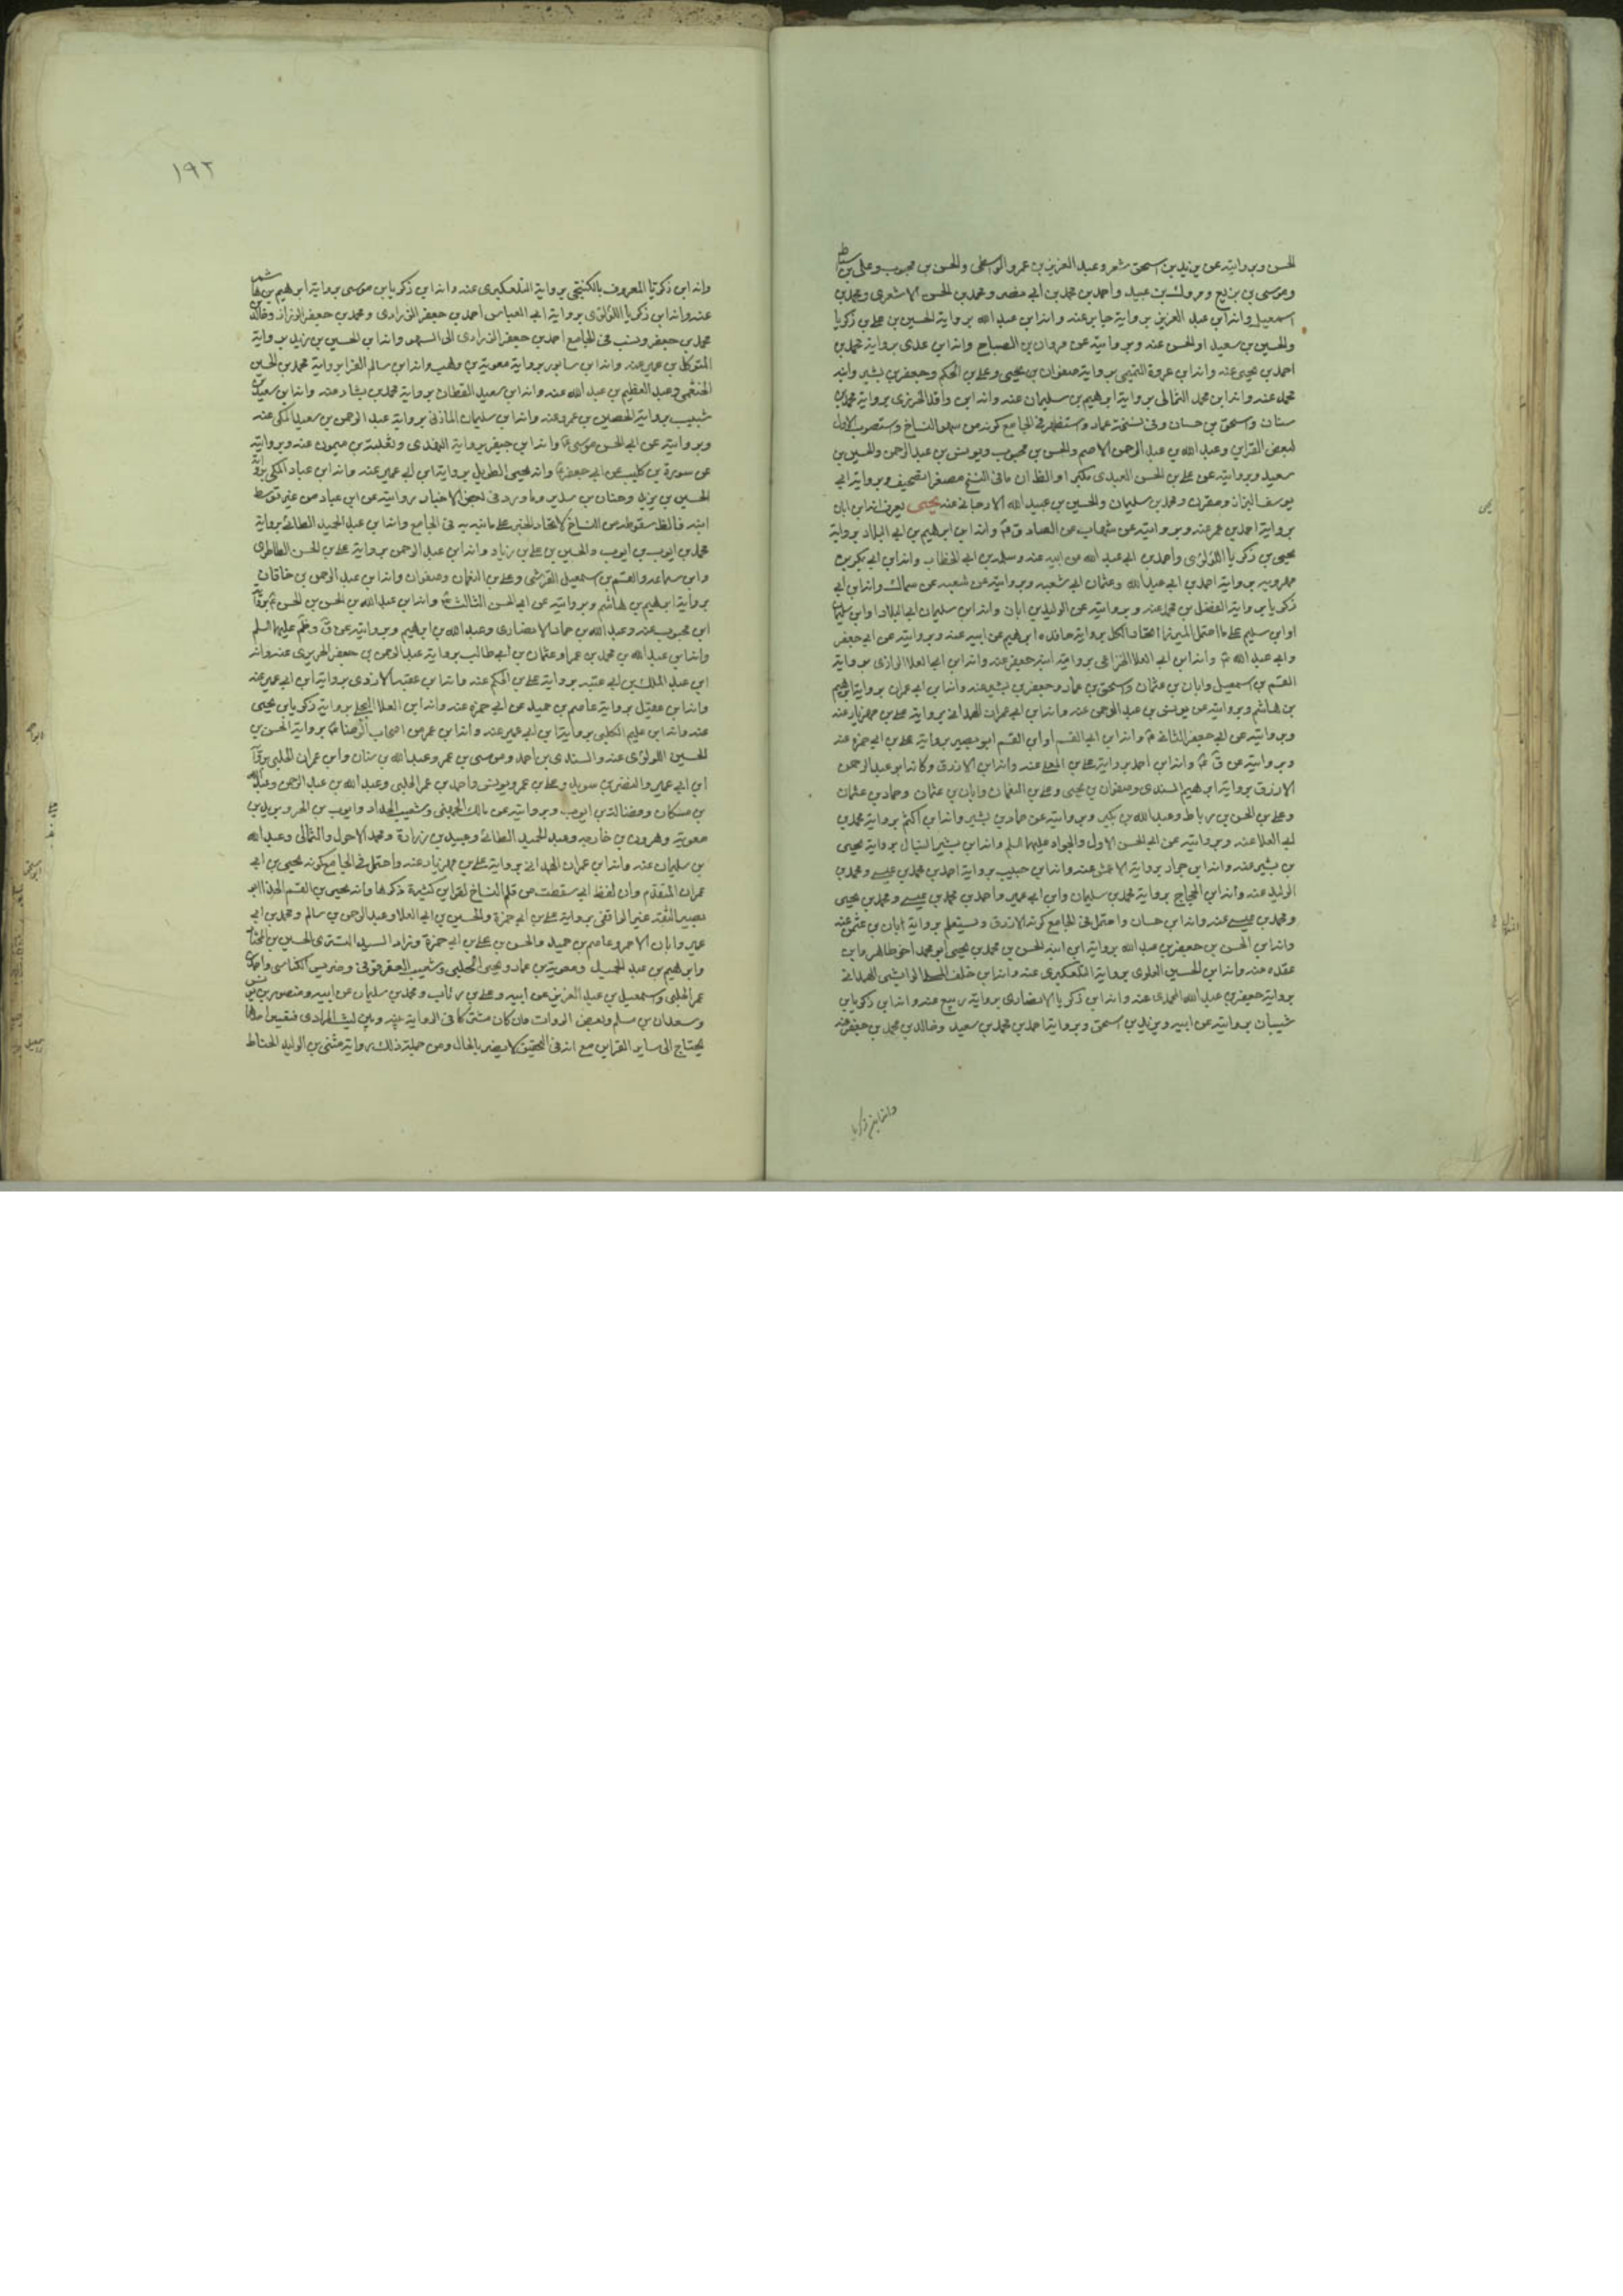 الحسن وبروايته عن يزيد بن اسحق شعر وعبد العزيز بن عمرو الواسطى والحسن بن محبوب وعلى بن اسباط
وموسى بن بزيع ومروك بن عبيد واحمد بن محمد بن أبى نصر ومحمد بن الحسن الاشعرى ومحمد بن
اسمعيل وانه ابن عبد العزيز برواية جابر عنه وانه ابن عبد الله برواية الحسين بن على بن زكريا
والحسين بن سعيد او الحسن عنه وبروايته عن مروان بن الصباح وانه ابن عدى برواية محمد بن
احمد بن يحيى عنه وانه ابن عروة التميمى برواية صفوان بن يحيى وعلى بن الحكم وجعفر بن بشير وانه
محمد عنه وانه ابن محمد الثمالى برواية ابرهيم بن سليمان عنه وانه ابن واقد الجزرى برواية محمد بن
سنان واسحق بن حسان وفى نسخة عماد واستظهر فى الجامع كونه من سهو النساخ واستصوب الاول
لبعض القراين وعبد الله بن عبد الرحمن الاصم والحسن بن محبوب ويونس بن عبد الرحمن والحسين بن
سعيد وبروايته عن على بن الحسن العبدى مكبرا والظ ان ما فى النسخ مصغرا تصحيف وبرواية ابى
يوسف البزاز ومحمد بن سليمان والحسين بن عبيد الله الارجانى عنه يحيى يعرف انه ابن ابان
برواية احمد بن عمر عنه وبروايته عن شهاب عن الصادق ع وانه ابن ابرهيم بن ابى البلاد برواية
يحيى بن زكريا اللؤلؤى واحمد بن ابى عبد الله عن ابيه عنه وسلمة بن ابى الخطاب وانه ابن ابى بكر بن
مهرويه برواية احمد بن ابى عبد الله وعثمان ابى شعبه وبروايته عن شعبه عن سماك وانه ابن ابى
زكريا برواية الفضل بن محمد عنه وبروايته عن الوليد بن ابان وانه ابن سليمان ابى البلاد او ابن سليم
وابى عبد الله ع وانه ابن ابى العلا الخزاعى برواية ابنه جعفر عنه وانه ابن ابى العلا الرازى برواية
القسم بن اسمعيل وابان بن عثمان واسحق بن عمار وجعفر بن بشير عنه وانه ابن ابى عمران برواية ابرهيم
بن هاشم وبروايته عن يونس بن عبد الرحمن عنه وانه ابن ابى عمران الهمدانى برواية على بن مهزيار عنه
وبروايته عن ابى جعفر الثانى ع وانه ابن ابى القسم او ابن القسم ابو بصير برواية على بن ابى حمزه عنه
وبروايته عن ق ع وانه ابن احمد برواية على بن المعلى عنه وانه ابن الازرق وكانه ابو عبد الرحمن
الازرق برواية ابرهيم السندى وصفوان بن يحيى وعلى بن النعمان وابان بن عثمان وحماد بن عثمان
وعلى بن الحسن بن رباط وعبد الله بن بكير وبروايته عن حماد بن بشير وانه ابن اكثم برواية محمد بن
ابى العلا عنه وبروايته عن ابى الحسن الاول والجواد عليهما السلم وانه ابن بشير النبال برواية يحيى
بن بشير عنه وانه ابن جراد برواية الاعمش عنه وانه ابن حبيب برواية احمد بن محمد بن عيسى ومحمد بن
الوليد عنه وانه ابن الحجاج برواية محمد بن سليمان وابن ابى عمير واحمد بن محمد بن عيسى ومحمد بن يحيى
ومحمد بن عيسى عنه وانه ابن حسان واحتمل فى الجامع كونه الازرق وسيعلم برواية ابان بن عثمن عنه
وانه ابن الحسن بن جعفر بن عبد الله برواية ابن ابنه الحسن بن محمد بن يحيى ابو محمد اخو طاهر وابن
عقده عنه وانه ابن الحسين العلوى برواية التلعكبرى عنه وانه ابن خلف الوابشى الهمدانى
برواية جعفر بن عبد الله المحمدى عنه وانه ابن زكريا الانصارى برواية ربيع عنه وانه ابن زكريا بن
شيبان بروايته عن ابيه وبزيد بن اسحق وبرواية احمد بن محمد بن سعيد وخالد بن محمد بن جعفر عنه
وانه ابن زكريا
١٩٢
وانه ابن زكريا المعروف بالكنيجى برواية التلعكبرى عنه وانه ابن زكريا بن موسى برواية ابرهيم بن هاشم
عنه وانه ابن زكريا اللؤلؤى برواية ابى العباس احمد بن جعفر الزرارى ومحمد بن جعفر الرزاز وخالد
محمد بن جعفر ونسب فى الجامع احمد بن جعفر الزرارى الى السهو وانه ابن الحسين بن زيد برواية
المتوكل بن عمير عنه وانه ابن سابور برواية معوية بن وهب وانه ابن سالم الفرا برواية محمد بن الحسين
الخثعمى وعبد العظيم بن عبد الله عنه وانه ابن سعيد القطان برواية محمد بن بشار عنه وانه ابن سعيد بن
شبيب برواية الحصين بن عمرو عنه وانه ابن سليمان المازنى برواية عبد الرحمن بن سعيد المكى عنه
وبروايته عن ابى الحسن موسى ع وانه ابن جعفر برواية النهدى وثعلبة بن ميمون عنه وبروايته
عن سورة بن كليب عن ابى جعفر ع وانه يحيى الطويل برواية ابن ابى عمير عنه وانه ابن عباد المكى برواية
الحسين بن يزيد وحنان بن سدير وما ورد فى بعض الاخبار بروايته عن ابن عباد من غير توسط
ابنه فالظ سقوطه من النساخ لاتحاد الخبر على ما نبه به فى الجامع وانه ابن عبد الحميد الطائى برواية
محمد بن ايوب بن ايوب والحسين بن على بن زياد وانه ابن عبد الرحمن برواية على بن الحسن الطاطرى
وابن سماعه والقسم بن اسمعيل القرشى وعلى بن النعمان وصفوان وانه ابن عبد الرحمن بن خاقان
برواية ابرهيم بن هاشم وبروايته عن ابى الحسن الثالث ع وانه ابن عبد الله بن الحسن بن الحسن ع برواية
ابن محبوب عنه وعبد الله بن حماد الانصارى وعبد الله بن ابرهيم وبروايته عن ق وظم عليهما السلم
وانه ابن عبد الله بن محمد بن عمر وعثمان بن أبى طالب برواية عبد الرحمن بن جعفر الحريرى عنه وانه
ابن عبد الملك بن ابى عتبه برواية على بن الحكم عنه وانه ابن عقبه الازدى برواية ابن ابى عمير عنه
وانه ابن عقيل برواية عاصم بن حميد عن ابى حمزه عنه وانه ابن العلا البجلى برواية زكريا بن يحيى
عنه وانه ابن عليم الكلبى برواية ابن ابى عمير عنه وانه ابن عمر من اصحاب الرضا ع برواية الحسن بن
الحسين اللولؤى عنه والسندى بن احمد وموسى بن عمر وعبد الله بن سنان وابن عمران الحلبى برواية
ابن ابى عمير والنضر بن سويد وعلى بن عمر ويونس واحمد بن عمر الحلبى وعبد الله بن عبد الرحمن وعبد الله
بن مسكان وفضالة بن ايوب وبروايته عن مالك الجهنى وشعيب الحداد وايوب بن الحر وبريد بن
معوية وهرون بن خارجه وعبد الحميد الطائى وعبيد بن زرارة ومحمد الاحول والثمالى وعبد الله
بن سليمان عنه وانه ابن عمران الهمدانى برواية على بن مهزيار عنه واحتمل فى الجامع كونه يحيى بن ابى
عمران المتقدم وان لفظ ابى سقطت من قلم النساخ لقراين كثيرة ذكرها وانه يحيى بن القسم الحذا ابو
بصير الثقة غير الواقفى برواية على بن ابى حمزة والحسين بن ابى العلا وعبد الرحمن بن سالم ومحمد بن ابى
عمير وابان الاحمر وعاصم بن حميد والحسن بن على بن ابى حمزة وزاد السيد التسترى الحسين بن المختار
وابرهيم بن عبد الحميد ومعوية بن عمار ويحيى الحلبى وشعيب العقرقوفى وضريس الكناسى واحمد بن
عمر الحلبى واسمعيل بن عبد العزيز عن ابيه وعلى بن رئاب ومحمد بن سليمان عن ابيه ومنصور بن يونس
وسعدان بن مسلم وبعض الروات وان كان مشتركا فى الرواية عنه وبين ليث المرادى فتعيين احدهما
يحتاج الى ساير القراين مع انه فى التحقيق لا يضر بالحال ومن جملة ذلك رواية مثنى بن الوليد الحناط